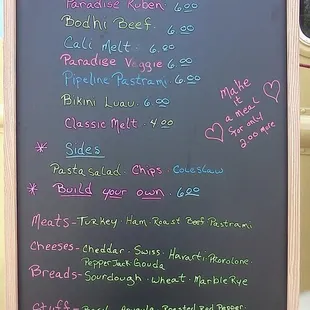 Paradise Ruben 6.00
Bodhi Beef . 6.00
Cali Melt . 6.00
Paradise Veggie 6.00
Pipeline Pastrami . 6.00
Bikini Luau . 6.00
Classic Melt . 4.00
Make
it
a meal
for only
2.00 more
* Sides
Pasta Salad . Chips . Coleslaw
* Build your own . 6.00
Meats - Turkey . Ham . Roast Beef Pastrami
Cheeses - Cheddar . Swiss . Havarti . Provolone .
Pepper Jack Gouda
Breads - Sourdough . Wheat . Marble Rye
Stuff - Basil . Arugula . Roasted Red Pepper